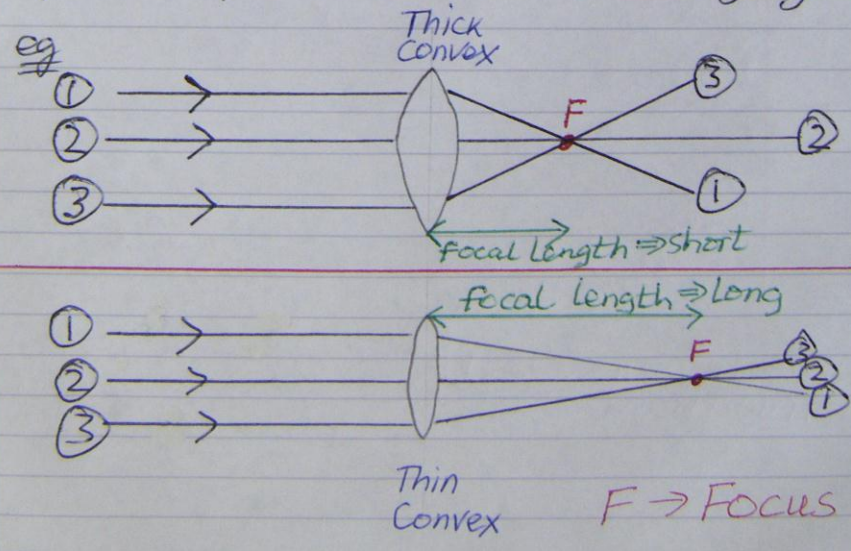 Thick
Convex
eg
1
2
3
F
3
2
1
focal length ⇒ short
focal length ⇒ Long
1
2
3
F
3
2
1
Thin
Convex
F → Focus